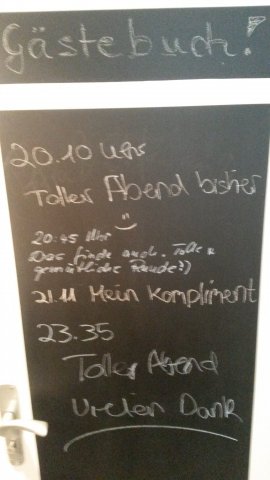 Gästebuch!
20.10 Uhr
Toller Abend bisher
20:45 Uhr
Das finde auch. Tolle
gemütliche Runde :)
21.11 Mein Kompliment
23.35
Toller Abend
Vielen Dank